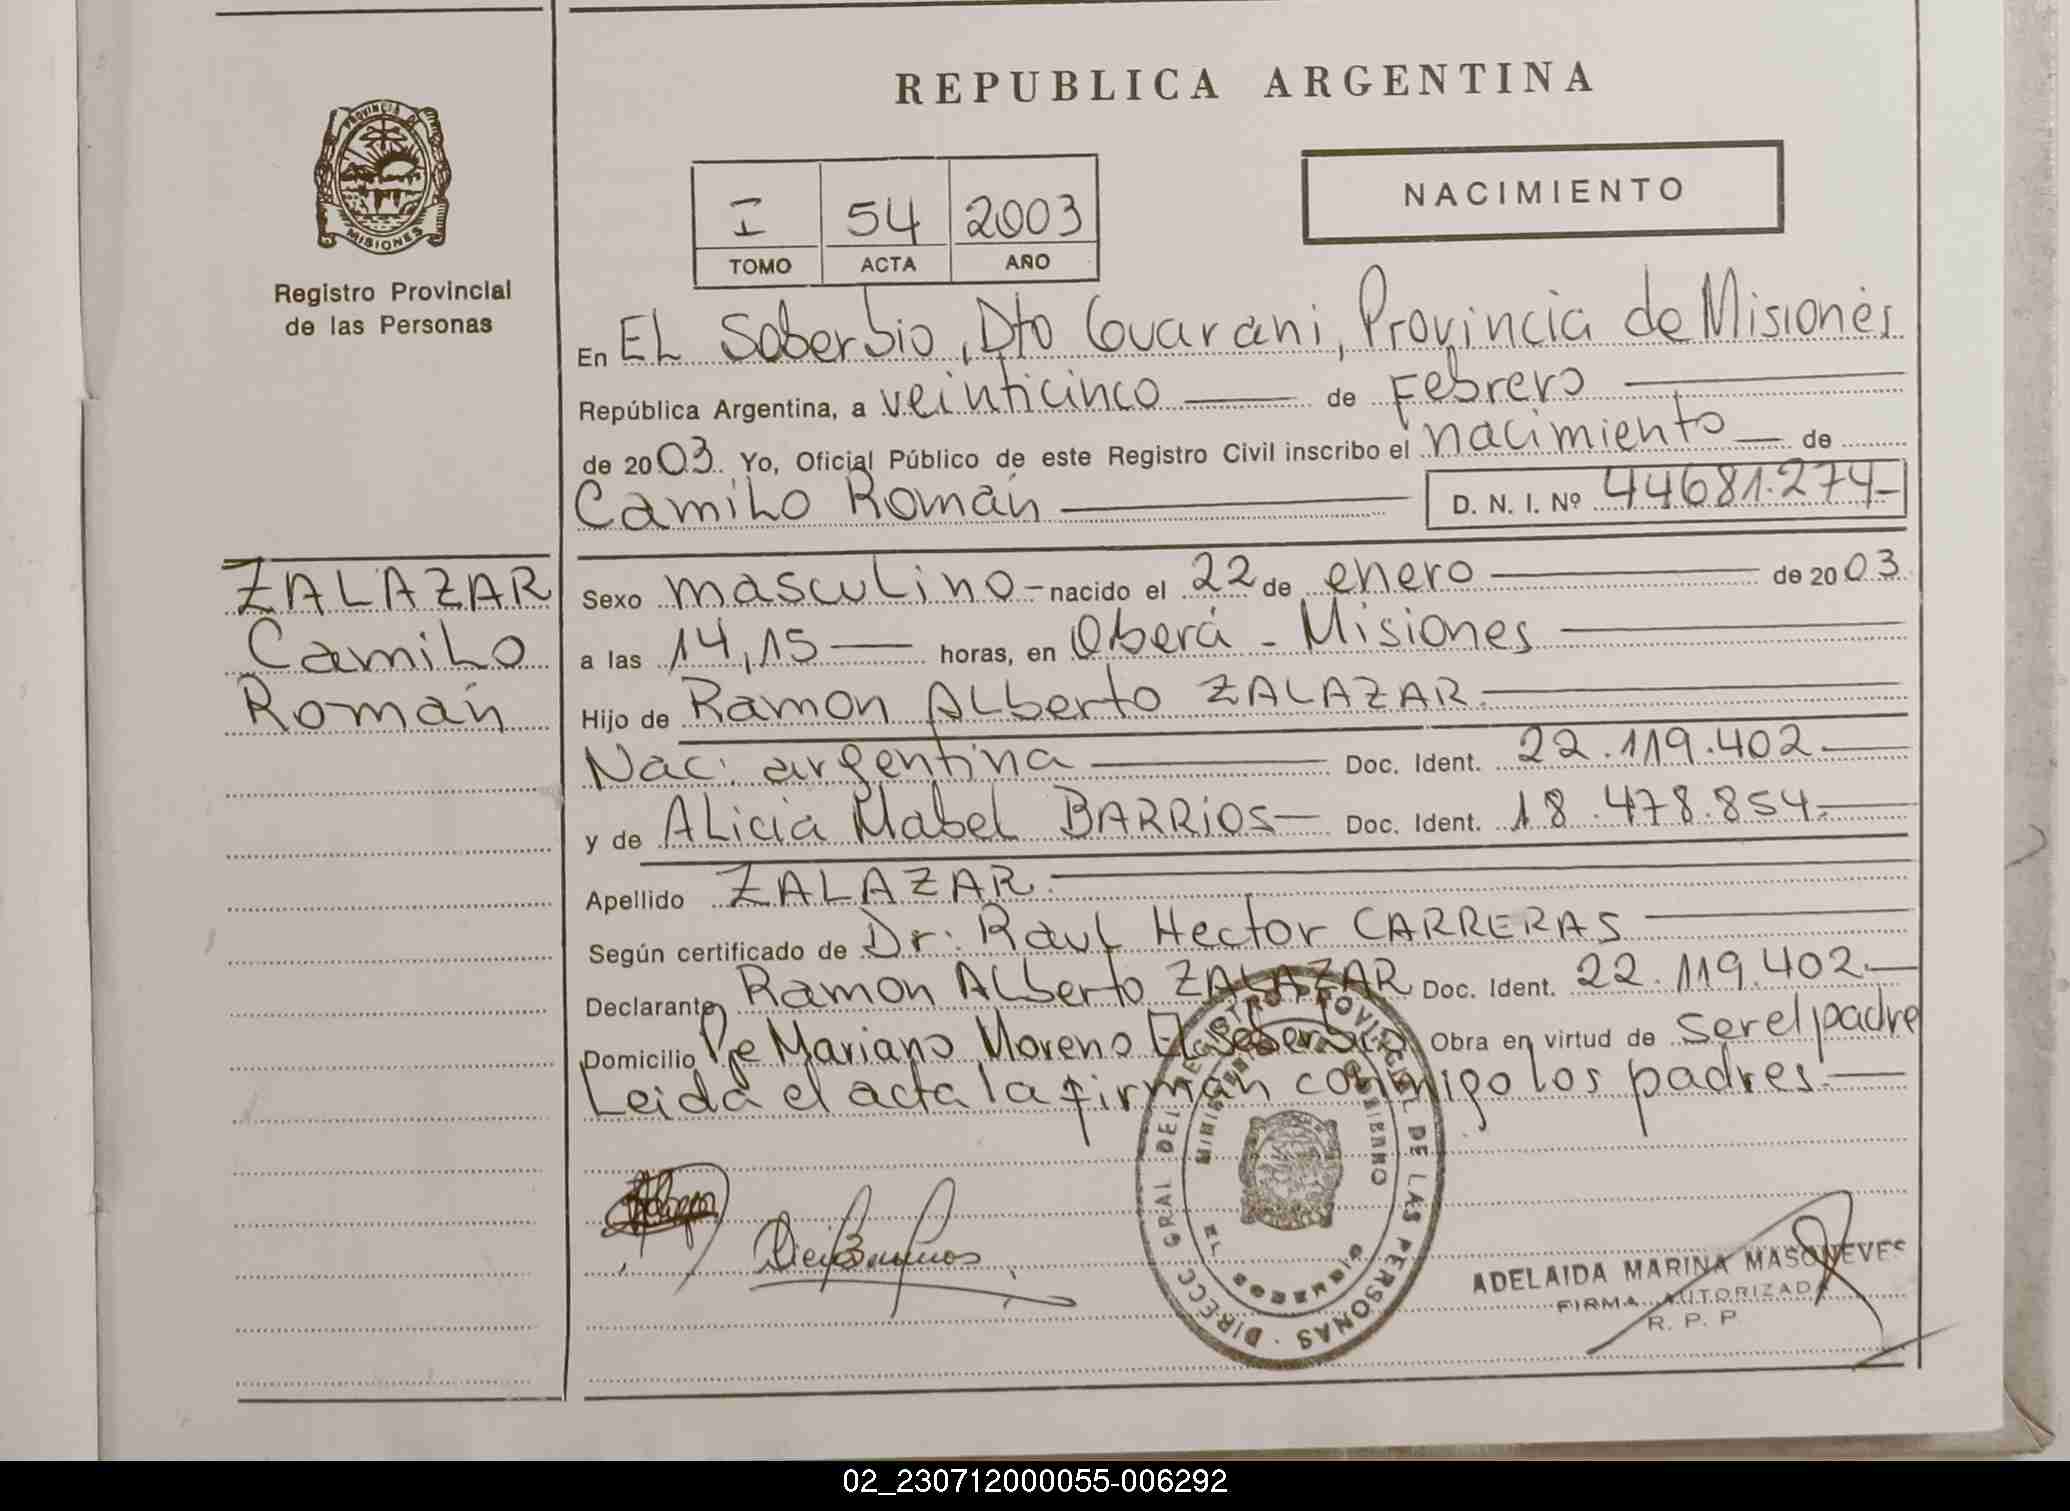 REPUBLICA ARGENTINA
PROVINCIA DE
MISIONES
Registro Provincial
de las Personas
NACIMIENTO
I 54 2003
TOMO ACTA AÑO
En EL Soberbio, Dto Guarani, Provincia de Misiones
República Argentina, a veinticinco de Febrero
de 2003. Yo, Oficial Público de este Registro Civil inscribo el nacimiento de
Camilo Román D. N. I. Nº 44681.274
ZALAZAR
Camilo
Román
Sexo masculino nacido el 22 de enero de 2003
a las 14,15 horas, en Oberá - Misiones
Hijo de Ramon Alberto ZALAZAR
Nac. argentina Doc. Ident. 22.119.402
y de Alicia Mabel BARRIOS Doc. Ident. 18.478.854
Apellido ZALAZAR
Según certificado de Dr. Raul Hector CARRERAS
Declarante Ramon Alberto ZALAZAR Doc. Ident. 22.119.402
Domicilio Mariano Moreno El Soberbio Obra en virtud de ser el padre
Leida el acta la firman conmigo los padres
DIRECC GRAL DEL REGISTRO PROVINCIAL DE LAS PERSONAS
MINISTERIO DE GOBIERNO
MISIONES
ADELAIDA MARINA
FIRMA AUTORIZADA
R. P. P
02_230712000055-006292